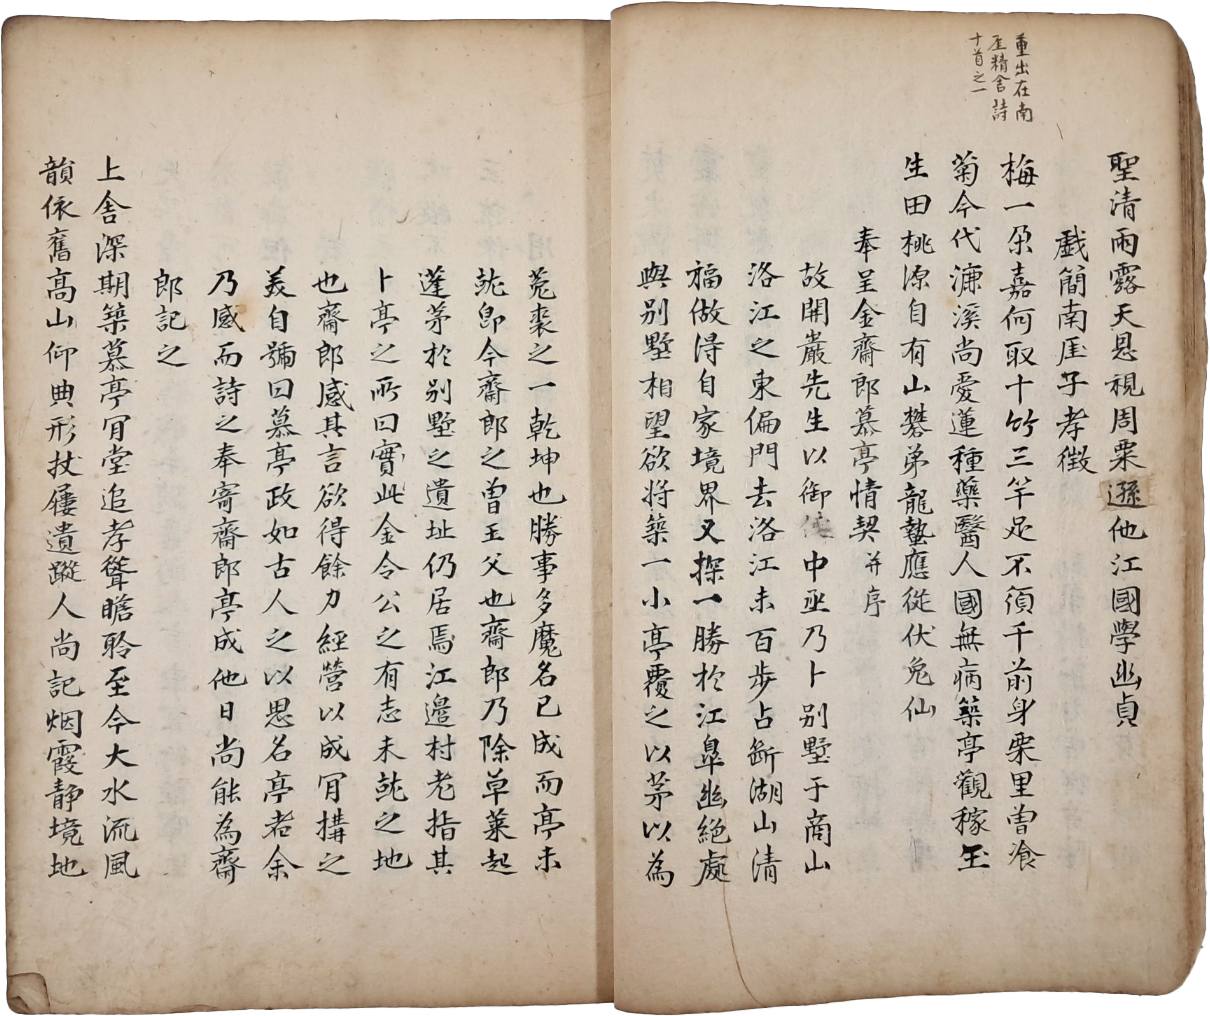 重出在南
厓精舍詩
十首之一
聖淸雨露天恩視周粟遜他江國學幽貞
戱簡南厓子孝徴
梅一朶嘉何取十竹三竿足不須千前身栗里曾飡
菊今代濂溪尙愛蓮種藥醫人國無病築亭觀稼玉
生田桃源自有山礬弟龍蟄應従伏兔仙
奉呈金齋郎慕亭情契并序
故開巖先生以御 中丞乃卜别墅于商山
洛江之東偏門去洛江未百步占斷湖山清
福做得自家境界又探一勝於江臯幽絕處
與别墅相望欲将築一小亭覆之以茅以為
菟裘之一乾坤也勝事多魔名已成而亭未
就卽今齋郎之曽王父也齋郎乃除草萊起
蓬茅於别墅之遺址仍居焉江邊村老指其
卜亭之所曰實此金令公之有志未就之地
也齋郎感其言欲得餘力經營以成肎搆之
美自號曰慕亭政如古人之以思名亭者余
乃感而詩之奉寄齋郎亭成他日尙能為齋
郎記之
上舍深期築慕亭肎堂追孝聳瞻聆至今大水流風
韻依舊高山仰典形杖屨遺蹤人尙記烟霞静境地